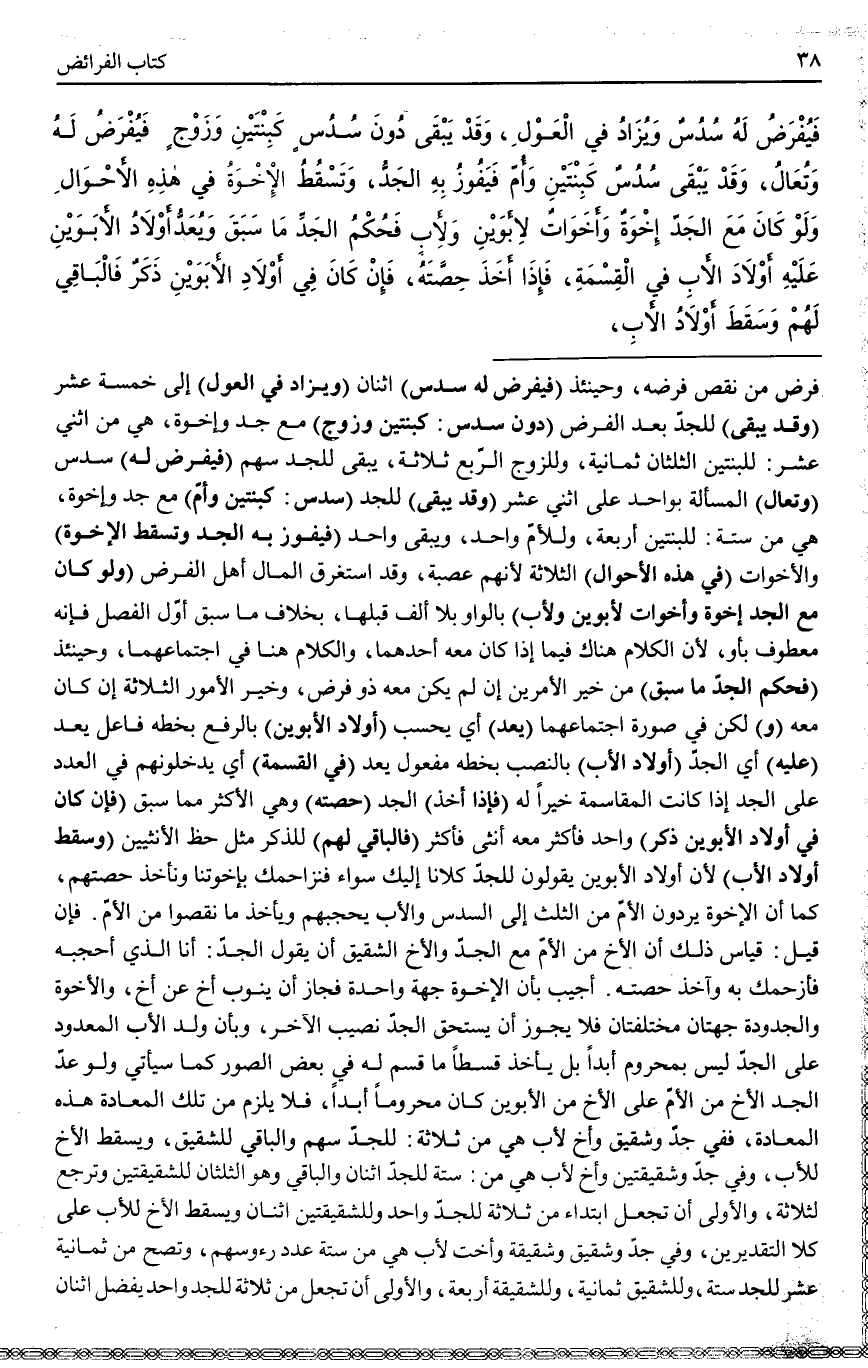 ٣٨
كتاب الفرائض
فَيُفْرَضُ لَهُ سُدُسٌ وَيُزَادُ في الْعَوْلِ، وَقَدْ يَبْقَى دُونَ سُدُسٍ كَبِنْتَيْنِ وَزَوْجٍ فَيُفْرَضُ لَهُ
وَتُعَالُ، وَقَدْ يَبْقَى سُدُسٌ كَبِنْتَيْنِ وَأُمّ فَيَفُوزُ بِهِ الجَدُّ، وَتَسْقُطُ الْإِخْوَةُ في هٰذِهِ الأَحْوَالِ
وَلَوْ كَانَ مَعَ الجَدّ إِخْوَةٌ وَأَخَوَاتٌ لِأَبَوَيْنِ وَلِأَبٍ فَحُكْمُ الجَدِّ مَا سَبَقَ وَيُعَدُّ أَوْلَادُ الأَبَوَيْنِ
عَلَيْهِ أَوْلَادَ الأَبِ في الْقِسْمَةِ، فَإِذَا أَخَذَ حِصَّتَهُ، فَإِنْ كَانَ فِي أَوْلَادِ الأَبَوَيْنِ ذَكَرٌ فَالْبَاقِي
لَهُمْ وَسَقَطَ أَوْلَادُ الأَبِ،
فرض من نقص فرضه، وحينئذ (فيفرض له سدس) اثنان (ويزاد في العول) إلى خمسة عشر
(وقد يبقى) للجدّ بعد الفرض (دون سدس: كبنتين وزوج) مع جد وإخوة، هي من اثني
عشر: للبنتين الثلثان ثمانية، وللزوج الرّبع ثلاثة، يبقى للجد سهم (فيفرض له) سدس
(وتعال) المسألة بواحد على اثني عشر (وقد يبقى) للجد (سدس: كبنتين وأمّ) مع جد وإخوة،
هي من ستة: للبنتين أربعة، وللأمّ واحد، ويبقى واحد (فيفوز به الجد وتسقط الإخوة)
والأخوات (في هذه الأحوال) الثلاثة لأنهم عصبة، وقد استغرق المال أهل الفرض (ولو كان
مع الجد إخوة وأخوات لأبوين ولأب) بالواو بلا ألف قبلها، بخلاف ما سبق أوّل الفصل فإنه
معطوف بأو، لأن الكلام هناك فيما إذا كان معه أحدهما، والكلام هنا في اجتماعهما، وحينئذ
(فحكم الجدّ ما سبق) من خير الأمرين إن لم يكن معه ذو فرض، وخير الأمور الثلاثة إن كان
معه (و) لكن في صورة اجتماعهما (يعد) أي يحسب (أولاد الأبوين) بالرفع بخطه فاعل يعد
(عليه) أي الجدّ (أولاد الأب) بالنصب بخطه مفعول يعد (في القسمة) أي يدخلونهم في العدد
على الجد إذا كانت المقاسمة خيراً له (فإذا أخذ) الجد (حصته) وهي الأكثر مما سبق (فإن كان
في أولاد الأبوين ذكر) واحد فأكثر معه أنثى فأكثر (فالباقي لهم) للذكر مثل حظ الأنثيين (وسقط
أولاد الأب) لأن أولاد الأبوين يقولون للجدّ كلانا إليك سواء فنزاحمك بإخوتنا ونأخذ حصتهم،
كما أن الإخوة يردون الأمّ من الثلث إلى السدس والأب يحجبهم ويأخذ ما نقصوا من الأمّ. فإن
قيل: قياس ذلك أن الأخ من الأمّ مع الجدّ والأخ الشقيق أن يقول الجدّ: أنا الذي أحجبه
فأزحمك به وآخذ حصته. أجيب بأن الإخوة جهة واحدة فجاز أن ينوب أخ عن أخ، والأخوة
والجدودة جهتان مختلفتان فلا يجوز أن يستحق الجدّ نصيب الآخر، وبأن ولد الأب المعدود
على الجدّ ليس بمحروم أبداً بل يأخذ قسطاً ما قسم له في بعض الصور كما سيأتي ولو عدّ
الجد الأخ من الأمّ على الأخ من الأبوين كان محروماً أبداً، فلا يلزم من تلك المعادة هذه
المعادة، ففي جدّ وشقيق وأخ لأب هي من ثلاثة: للجدّ سهم والباقي للشقيق، ويسقط الأخ
للأب، وفي جدّ وشقيقتين وأخ لأب هي من: ستة للجدّ اثنان والباقي وهو الثلثان للشقيقتين وترجع
لثلاثة، والأولى أن تجعل ابتداء من ثلاثة للجدّ واحد وللشقيقتين اثنان ويسقط الأخ للأب على
كلا التقديرين، وفي جدّ وشقيق وشقيقة وأخت لأب هي من ستة عدد رءوسهم، وتصح من ثمانية
عشر للجد ستة، وللشقيق ثمانية، وللشقيقة أربعة، والأولى أن تجعل من ثلاثة للجد واحد يفضل اثنان